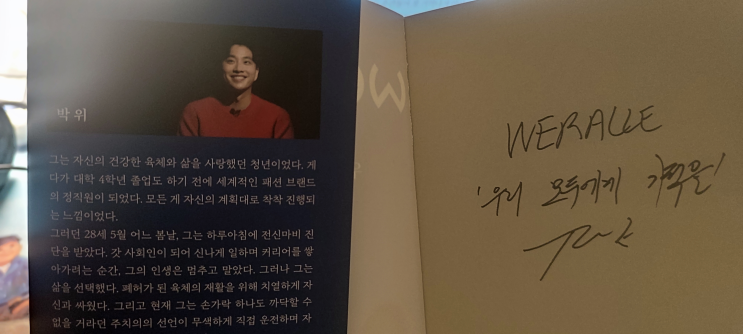 박 위
그는 자신의 건강한 육체와 삶을 사랑했던 청년이었다. 게
다가 대학 4학년 졸업도 하기 전에 세계적인 패션 브랜드
의 정직원이 되었다. 모든 게 자신의 계획대로 착착 진행되
는 느낌이었다.
그러던 28세 5월 어느 봄날, 그는 하루아침에 전신마비 진
단을 받았다. 갓 사회인이 되어 신나게 일하며 커리어를 쌓
아가려는 순간, 그의 인생은 멈추고 말았다. 그러나 그는
삶을 선택했다. 폐허가 된 육체의 재활을 위해 치열하게 자
신과 싸웠다. 그리고 현재 그는 손가락 하나도 까닥할 수
없을 거라던 주치의의 선언이 무색하게 직접 운전하며 자
WERACLE
'우리 모두에게 기적을'